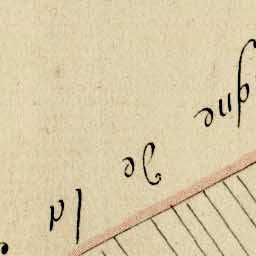 gne de la